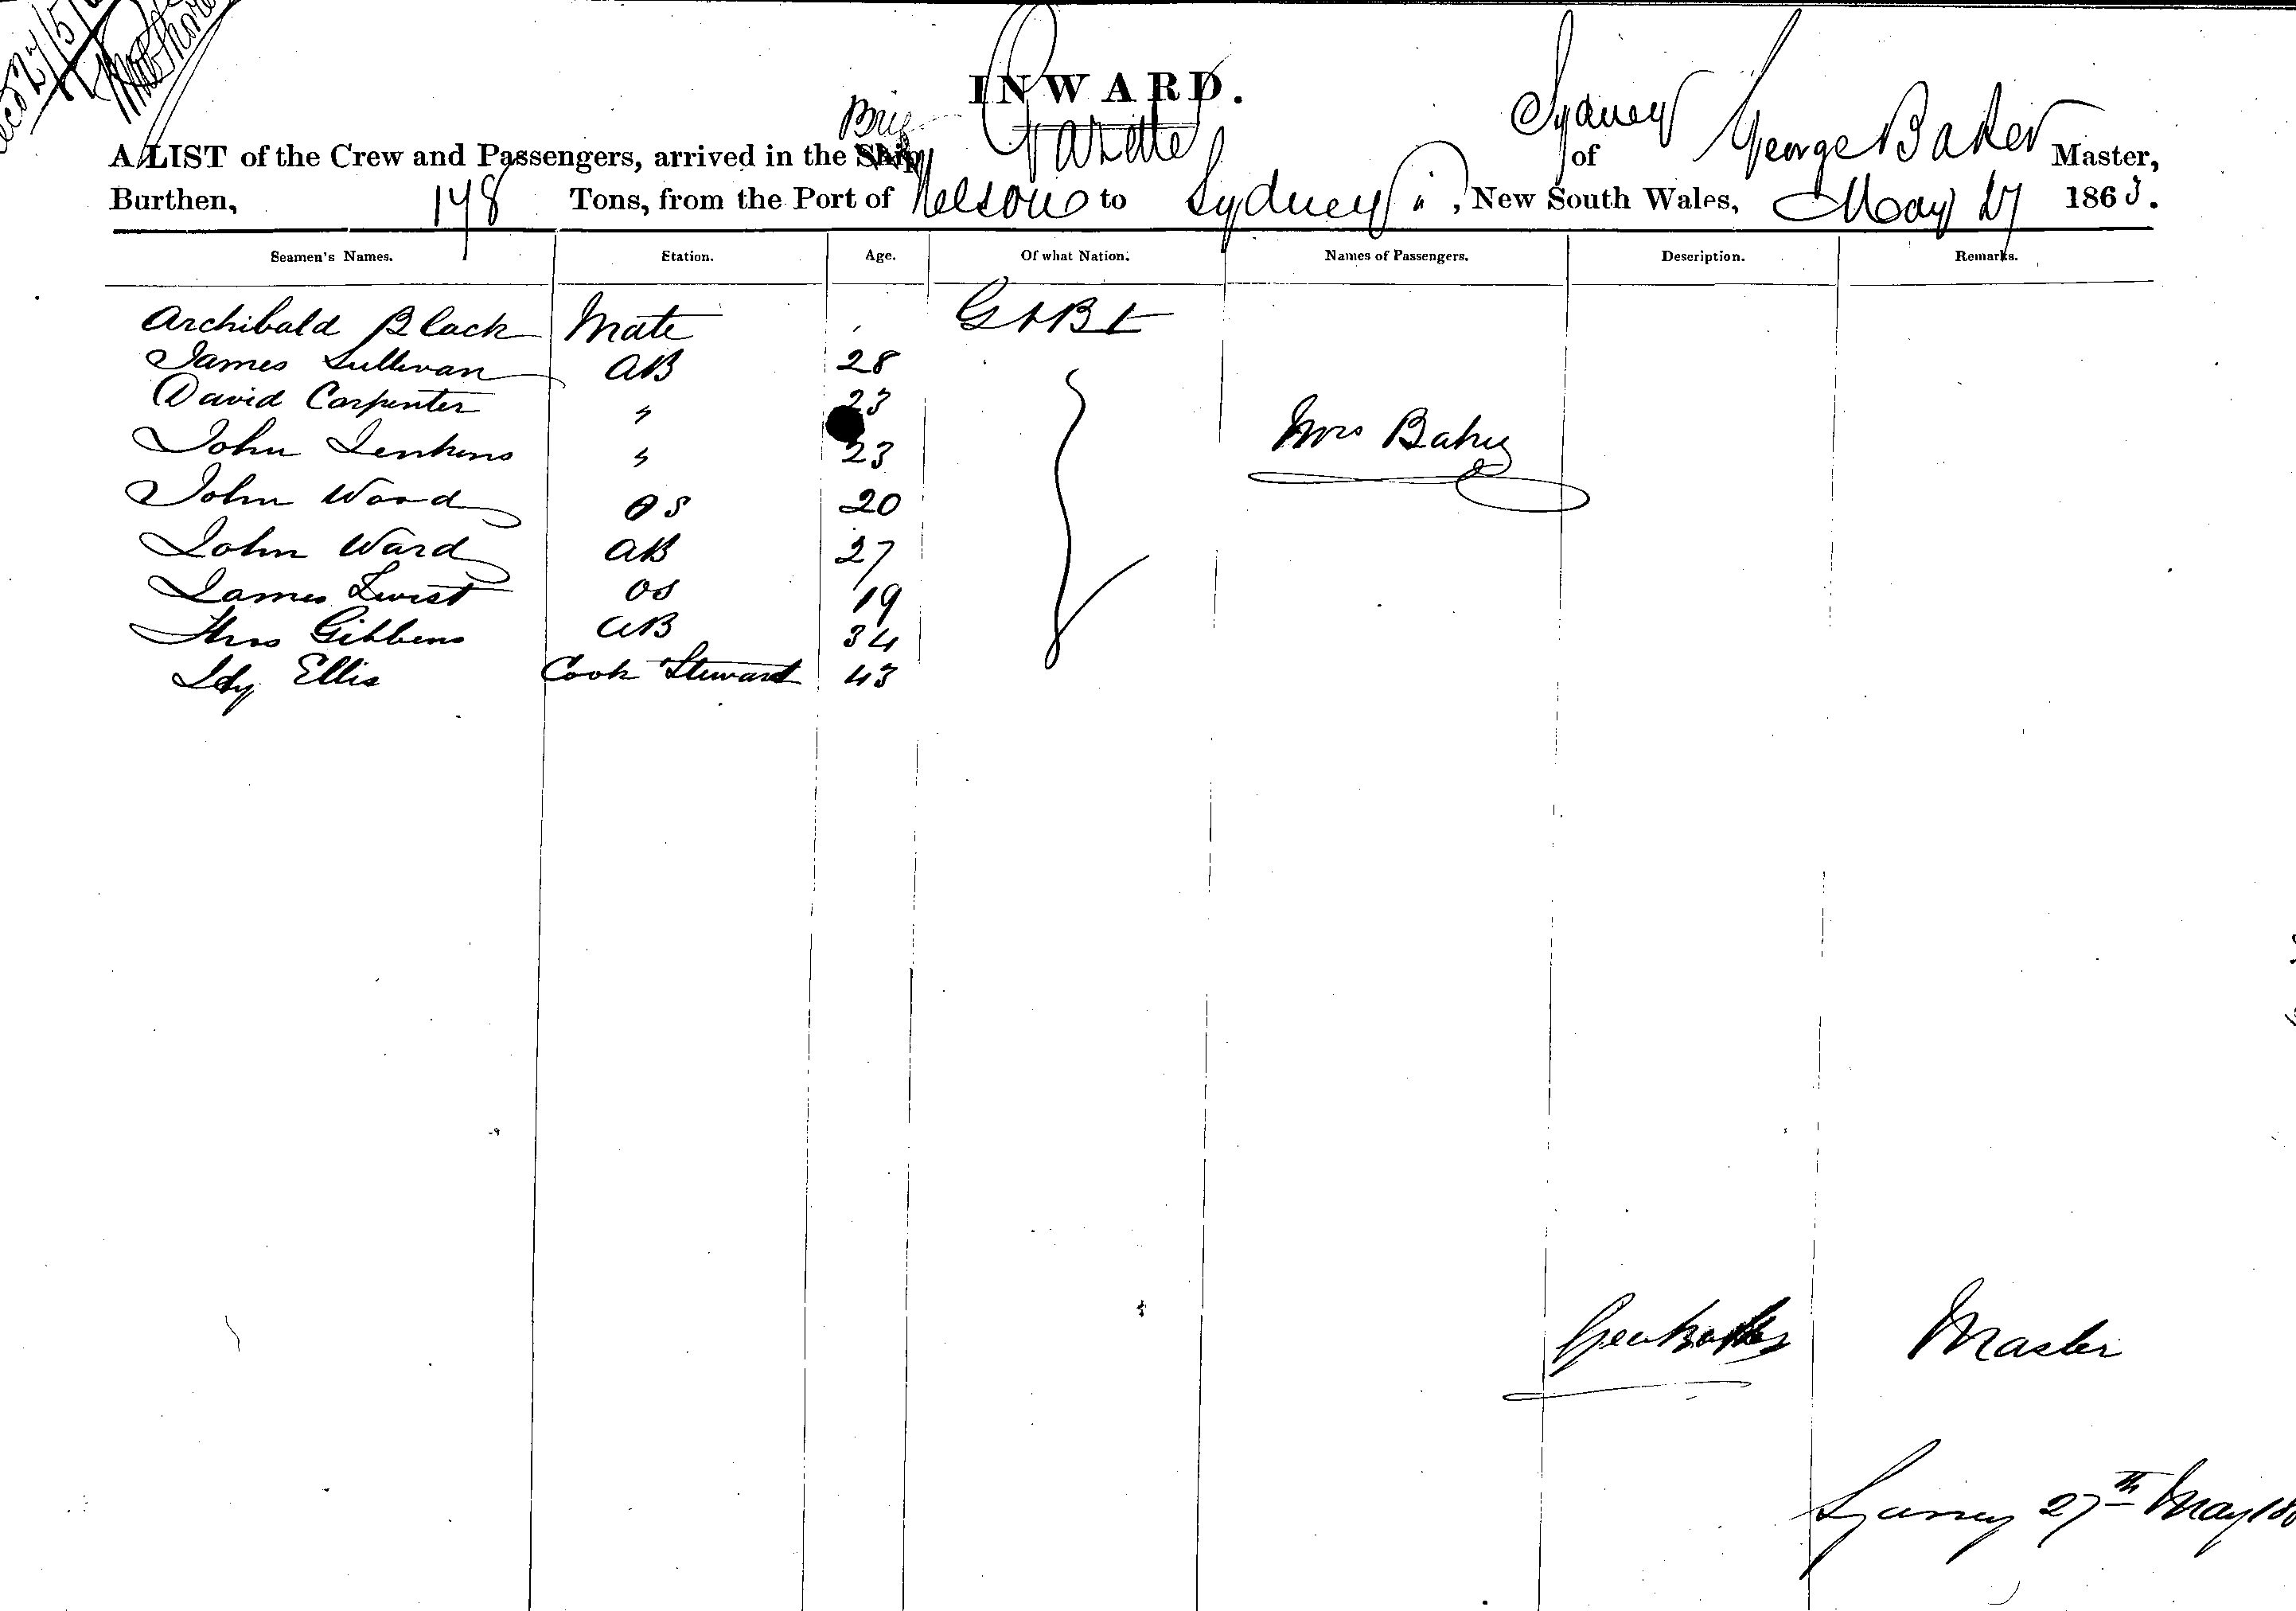 INWARD.
A LIST of the Crew and Passengers, arrived in the Brig Gazelle of Sydney George Baker Master,
Burthen, 148 Tons, from the Port of Nelson to Sydney, New South Wales, May 27 1863.
Seamen's Names. Station. Age. Of what Nation. Names of Passengers. Description. Remarks.
Archibald Black Mate
James Sullivan AB 28
David Carpenter " 23
John Jenkins " 23 Mrs Baker
John Wood OS 20
John Ward AB 27
James Twist OS 19
Thos Gibbens AB 34
Ellis Cook Steward 43
Geo Baker Master
Sydney 27th May